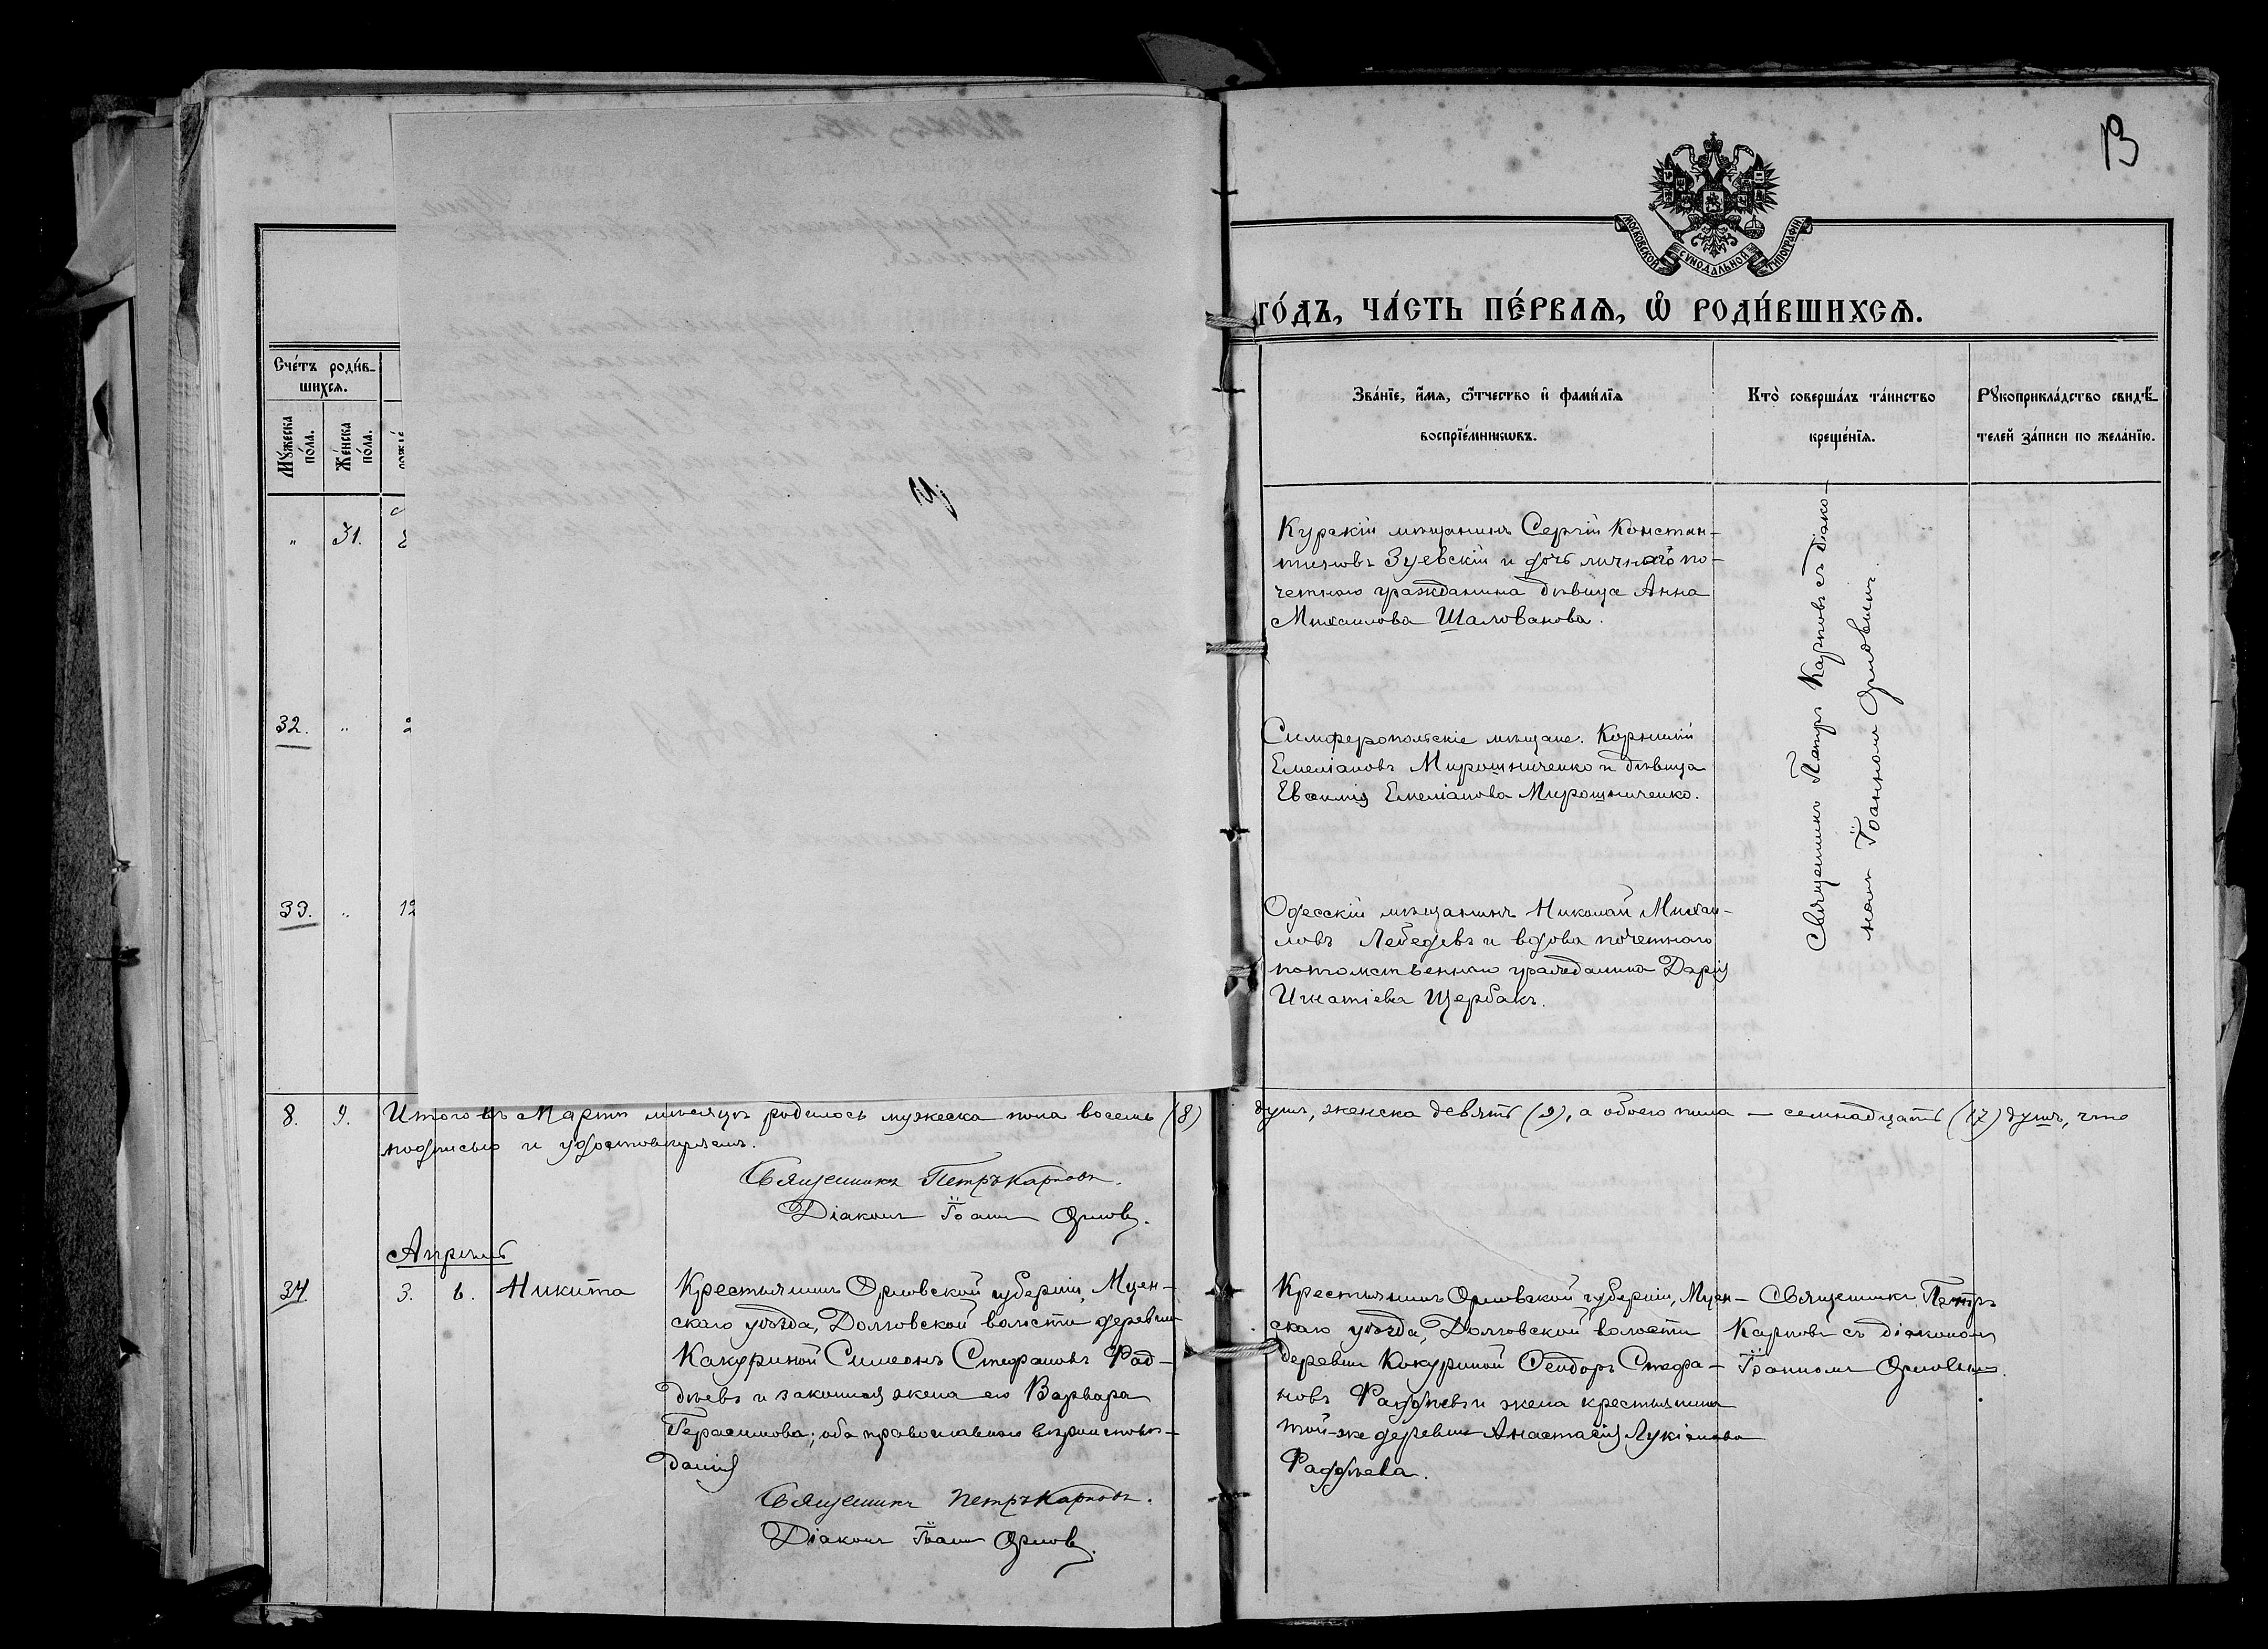 13
МОСКОВСКОЙ СѴНОДАЛЬНОЙ ТИПОГРАФІИ
ГО́ДЪ, ЧА́СТЬ ПЕ́РВАѦ, Ѡ҆ РОДИ́ВШИХСѦ.
Сче́тъ роди́в-
шихсѧ.
Мꙋ́жеска
по́ла.
Же́нска
по́ла.
Зва́нїе, и҆́мѧ, ѻ҆́тчество и҆ фами́лїѧ
воспрїе́мникѡвъ.
Кто̀ соверша́лъ та́инство
креще́нїѧ.
Рꙋкоприкла́дство свидѣ́-
телей за́писи по жела́нїю.
" 31.
Курскій мѣщанинъ Сергій Констан-
тиновъ Зуевскій и дочь личнаго по-
четнаго гражданина дѣвица Анна
Михаилова Шалованова.
Священникъ Петръ Карповъ съ діако-
номъ Іоанномъ Орловымъ.
32. "
Симферопольскіе мѣщане: Корнилій
Емеліановъ Мирошниченко и дѣвица
Евфимія Емеліанова Мирошниченко.
33. " 12
Одесскій мѣщанинъ Николай Михаи-
ловъ Лебедевъ и вдова почетнаго
потомственнаго гражданина Дарія
Игнатіева Щербакъ.
8. 9. Итого въ Мартѣ мѣсяцѣ родилось мужеска пола восемь (8) душъ, женска девять (9), а обоего пола — семнадцать (17) душъ, что
подписью и удостовѣряемъ.
Священникъ Петръ Карповъ.
Діаконъ Іоаннъ Орловъ.
Апрѣль
34 3. 6. Никита
Крестьянинъ Орловской губерніи, Мцен-
скаго уѣзда, Долговской волости деревни
Какуриной Симеонъ Стефановъ Фад-
дѣевъ и законная жена его Варвара
Герасимова; оба православнаго вѣроисповѣ-
данія
Священникъ Петръ Карповъ.
Діаконъ Іоаннъ Орловъ.
Крестьянинъ Орловской губерніи, Мцен-
скаго уѣзда, Долговской волости
деревни Кокуриной Ѳеодоръ Стефа-
новъ Фаддѣевъ и жена крестьянина
той-же деревни Анастасія Лукіанова
Фаддѣева.
Священникъ Петръ
Карповъ съ діакономъ
Іоанномъ Орловымъ.